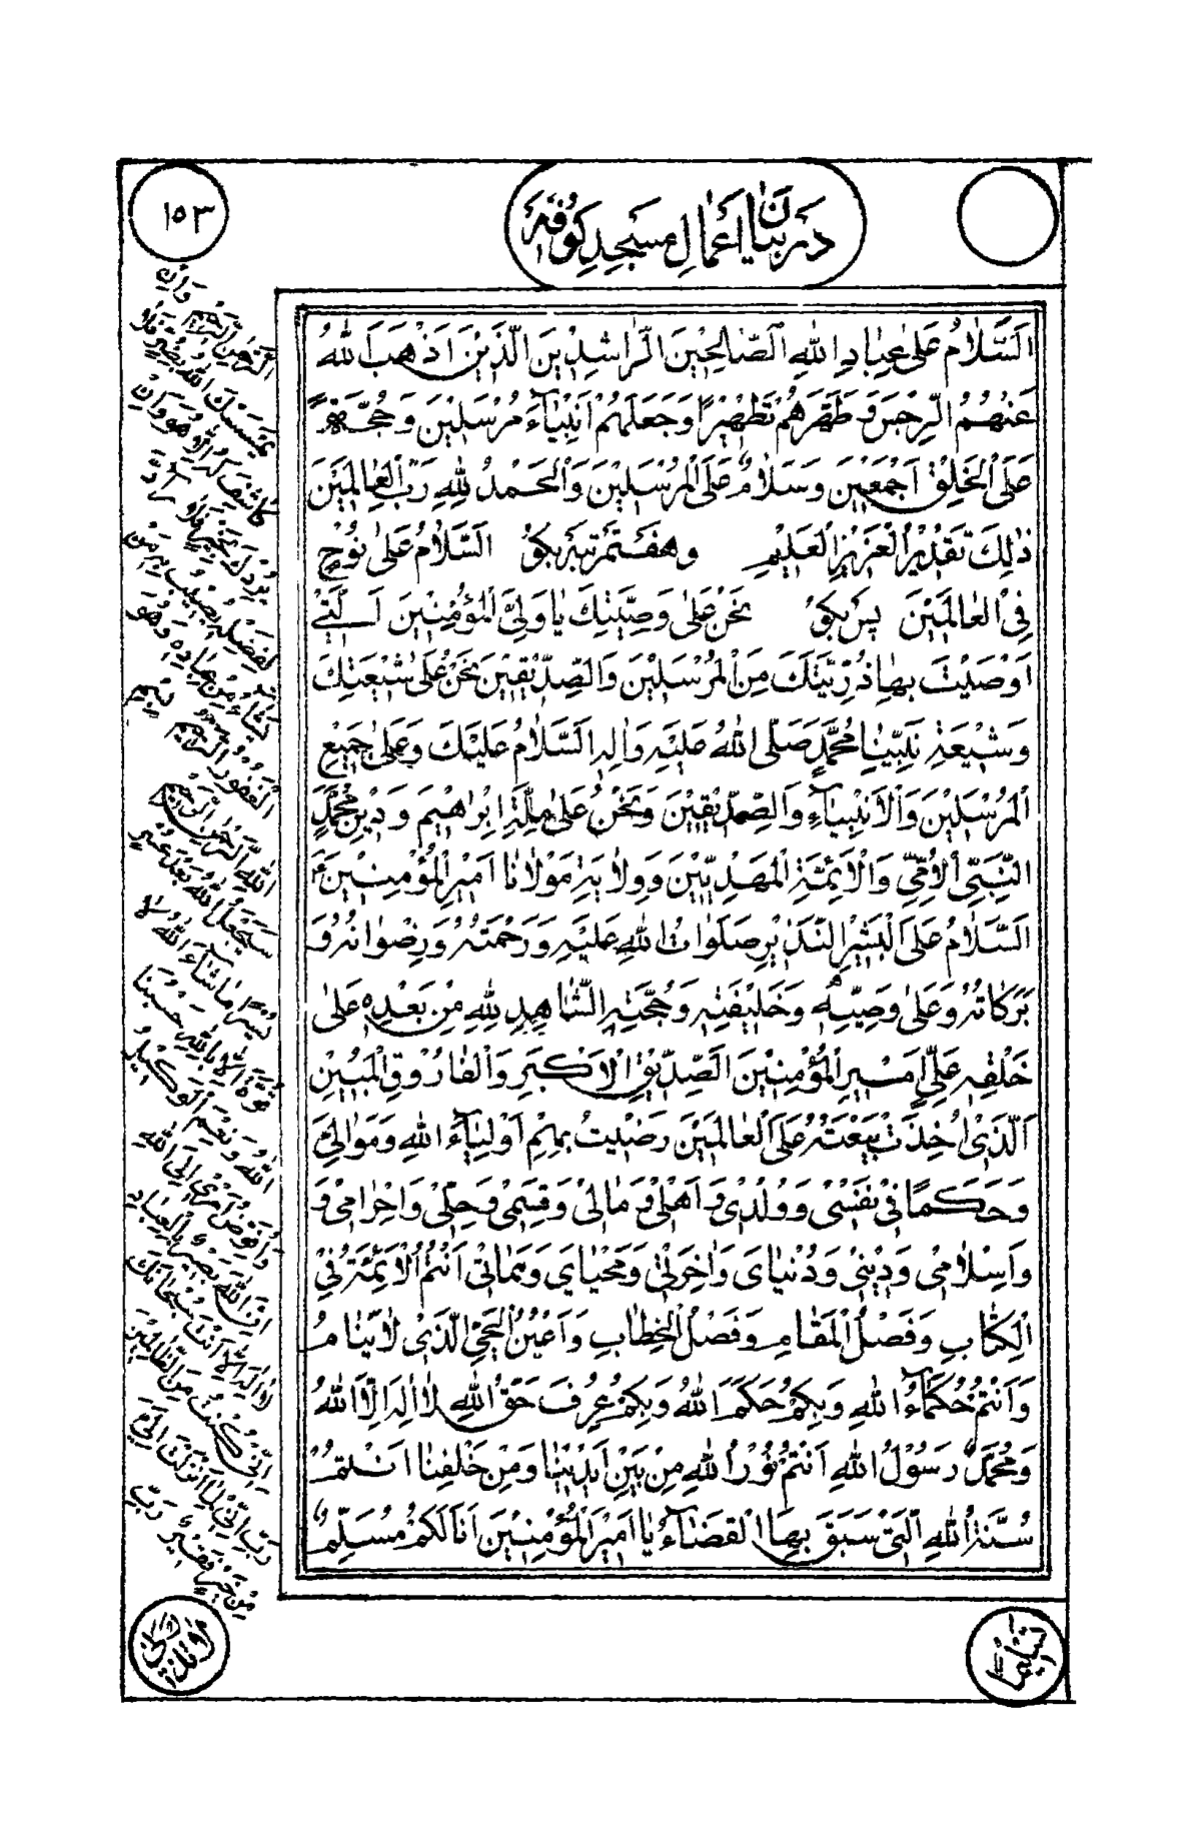 ١٥٣
دَر بَيَانِ اَعْمَالِ مَسْجِدِ كُوفَه
اَلسَّلَامُ عَلىٰ عِبَادِ اللهِ الصَّالِحِيْنَ الرَّاشِدِيْنَ الَّذِيْنَ اَذْهَبَ اللهُ
عَنْهُمُ الرِّجْسَ وَ طَهَّرَهُمْ تَطْهِيْرًا وَ جَعَلَهُمْ اَنْبِيَآءَ مُرْسَلِيْنَ وَ حُجَّةً
عَلَى الْخَلْقِ اَجْمَعِيْنَ وَ سَلَامٌ عَلَى الْمُرْسَلِيْنَ وَ الْحَمْدُ لِلّٰهِ رَبِّ الْعَالَمِيْنَ
ذٰلِكَ تَقْدِيْرُ الْعَزِيْزِ الْعَلِيْمِ وهفتمرتبه بكو اَلسَّلَامُ عَلىٰ نُوْحٍ
فِى الْعَالَمِيْنَ پس بكو نَحْنُ عَلىٰ وَصِيَّتِكَ يَا وَلِىَّ الْمُؤْمِنِيْنَ اَلَّتِيْ
اَوْصَيْتَ بِهَا ذُرِّيَّتَكَ مِنَ الْمُرْسَلِيْنَ وَ الصِّدِّيْقِيْنَ نَحْنُ عَلىٰ شِيْعَتِكَ
وَ شِيْعَةِ نَبِيِّنَا مُحَمَّدٍ صَلَّى اللهُ عَلَيْهِ وَاٰلِهِ اَلسَّلَامُ عَلَيْكَ وَ عَلىٰ جَمِيْعِ
الْمُرْسَلِيْنَ وَ الْاَنْبِيَآءِ وَ الصِّدِّيْقِيْنَ وَ نَحْنُ عَلىٰ مِلَّةِ اِبْرَاهِيْمَ وَ دِيْنِ مُحَمَّدٍ
النَّبِيِّ الْاُمِّيِّ وَ الْاَئِمَّةِ الْمَهْدِيِّيْنَ وَ وِلَايَةِ مَوْلَانَا اَمِيْرِ الْمُؤْمِنِيْنَ
اَلسَّلَامُ عَلَى الْبَشِيْرِ النَّذِيْرِ صَلَوَاتُ اللهِ عَلَيْهِ وَ رَحْمَتُهُ وَ رِضْوَانُهُ وَ
بَرَكَاتُهُ وَ عَلىٰ وَصِيِّهِ وَ خَلِيْفَتِهِ وَ حُجَّتِهِ الشَّاهِدِ لِلّٰهِ مِنْ بَعْدِهِ عَلىٰ
خَلْقِهِ عَلِيٍّ اَمِيْرِ الْمُؤْمِنِيْنَ اَلصِّدِّيْقِ الْاَكْبَرِ وَ الْفَارُوْقِ الْمُبِيْنِ
اَلَّذِيْ اُخِذَتْ بَيْعَتُهُ عَلَى الْعَالَمِيْنَ رَضِيْتُ بِهِمْ اَوْلِيَآءَ اللهِ وَ مَوَالِيَ
وَ حَكَمًا فِيْ نَفْسِيْ وَ وُلْدِيْ وَ اَهْلِيْ وَ مَالِيْ وَ قِسَمِيْ وَ حِلِّيْ وَ اِحْرَامِيْ وَ
وَ اِسْلَامِيْ وَ دِيْنِيْ وَ دُنْيَايَ وَ اٰخِرَتِيْ وَ مَحْيَايَ وَ مَمَاتِيْ اَنْتُمُ الْاَئِمَّةُ فِيْ
الْكِتَابِ وَ فَصْلُ الْمَقَامِ وَ فَصْلُ الْخِطَابِ وَ اَعْيُنُ الْحَيِّ الَّذِيْ لَا يَنَامُ
وَ اَنْتُمْ حُكَمَآءُ اللهِ وَ بِكُمْ حَكَمَ اللهُ وَ بِكُمْ عُرِفَ حَقُّ اللهِ لَا اِلٰهَ اِلَّا اللهُ
وَ مُحَمَّدٌ رَسُوْلُ اللهِ اَنْتُمْ نُوْرُ اللهِ مِنْ بَيْنِ اَيْدِيْنَا وَ مِنْ خَلْفِنَا اَنْتُمْ
سُنَّةُ اللهِ الَّتِيْ سَبَقَ بِهَا الْقَضَآءُ يَا اَمِيْرَ الْمُؤْمِنِيْنَ اَنَا لَكُمْ مُسَلِّمٌ
تَسْلِيْمًا
الرَّحْمٰنِ الرَّحِيْمِ وَ اِنْ
يَمْسَسْكَ اللهُ بِضُرٍّ فَلَا
كَاشِفَ لَهُ اِلَّا هُوَ وَ اِنْ
يُرِدْكَ بِخَيْرٍ فَلَا رَآدَّ
لِفَضْلِهِ يُصِيْبُ بِهِ مَنْ
يَشَآءُ مِنْ عِبَادِهِ وَ هُوَ
الْغَفُوْرُ الرَّحِيْمُ بِسْمِ
اللهِ الرَّحْمٰنِ الرَّحِيْمِ
سَيَجْعَلُ اللهُ بَعْدَ عُسْرٍ
يُسْرًا مَا شَآءَ اللهُ لَا
قُوَّةَ اِلَّا بِاللهِ حَسْبُنَا
اللهُ وَ نِعْمَ الْوَكِيْلُ
وَ اُفَوِّضُ اَمْرِيْ اِلَى اللهِ
اِنَّ اللهَ بَصِيْرٌ بِالْعِبَادِ
لَا اِلٰهَ اِلَّا اَنْتَ سُبْحَانَكَ
اِنِّيْ كُنْتُ مِنَ الظَّالِمِيْنَ
رَبِّ اِنِّيْ لِمَا اَنْزَلْتَ اِلَيَّ
مِنْ خَيْرٍ فَقِيْرٌ رَبِّ